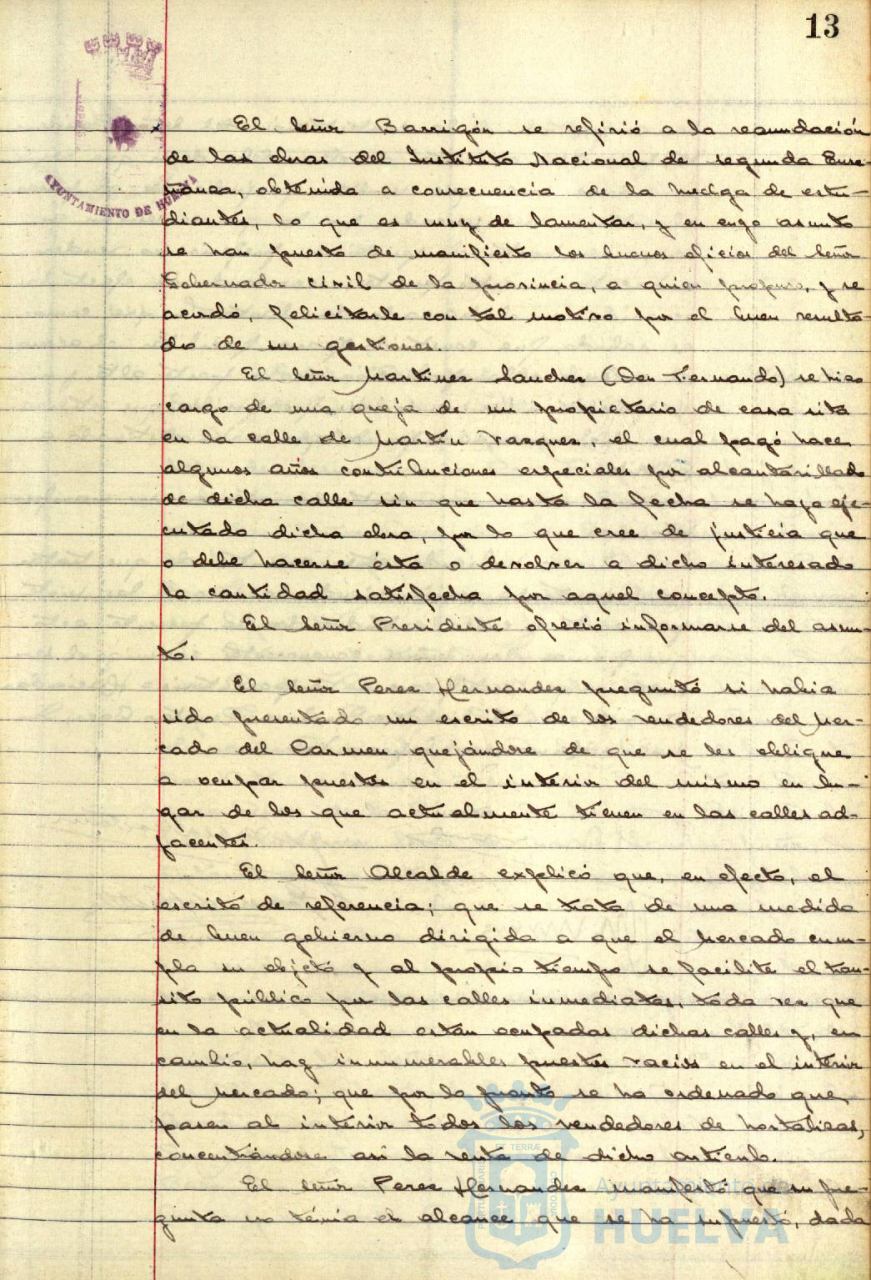 13
AYUNTAMIENTO DE HUELVA
El Señor Barrigón se refirió a la reanudación
de las obras del Instituto Nacional de segunda Ense-
ñanza, obtenida a consecuencia de la huelga de estu-
diantes, lo que es muy de lamentar, y en cuyo asunto
se han puesto de manifiesto los buenos oficios del Señor
Gobernador civil de la provincia, a quien propuso, y se
acordó, felicitarle con tal motivo por el buen resulta-
do de sus gestiones.
El Señor Martinez Sanchez (Don Fernando) se hizo
cargo de una queja de un propietario de casa sita
en la calle de Martin Vazquez, el cual pagó hace
algunos años contribuciones especiales por alcantarillado
de dicha calle sin que hasta la fecha se haya eje-
cutado dicha obra, por lo que cree de justicia que
o debe hacerse ésta o devolver a dicho interesado
la cantidad satisfecha por aquel concepto.
El Señor Presidente ofreció informarse del asun-
to.
El Señor Perez Hernandez preguntó si habia
sido presentado un escrito de los vendedores del Mer-
cado del Carmen quejándose de que se les obligue
a ocupar puestos en el interior del mismo en lu-
gar de los que actualmente tienen en las calles ad-
yacentes.
El Señor Alcalde explicó que, en efecto, el
escrito de referencia; que se trata de una medida
de buen gobierno dirigida a que el Mercado cum-
pla su objeto y al propio tiempo se facilite el tran-
sito público por las calles inmediatas, toda vez que
en la actualidad están ocupadas dichas calles y, en
cambio, hay innumerables puestos vacios en el interior
del Mercado; que por lo pronto se ha ordenado que
pasen al interior todos los vendedores de hortalizas,
concentrándose asi la venta de dicho articulo.
El Señor Perez Hernandez manifestó que su pre-
gunta no tenia el alcance que se ha supuesto, dada
Ayuntamiento de
HUELVA